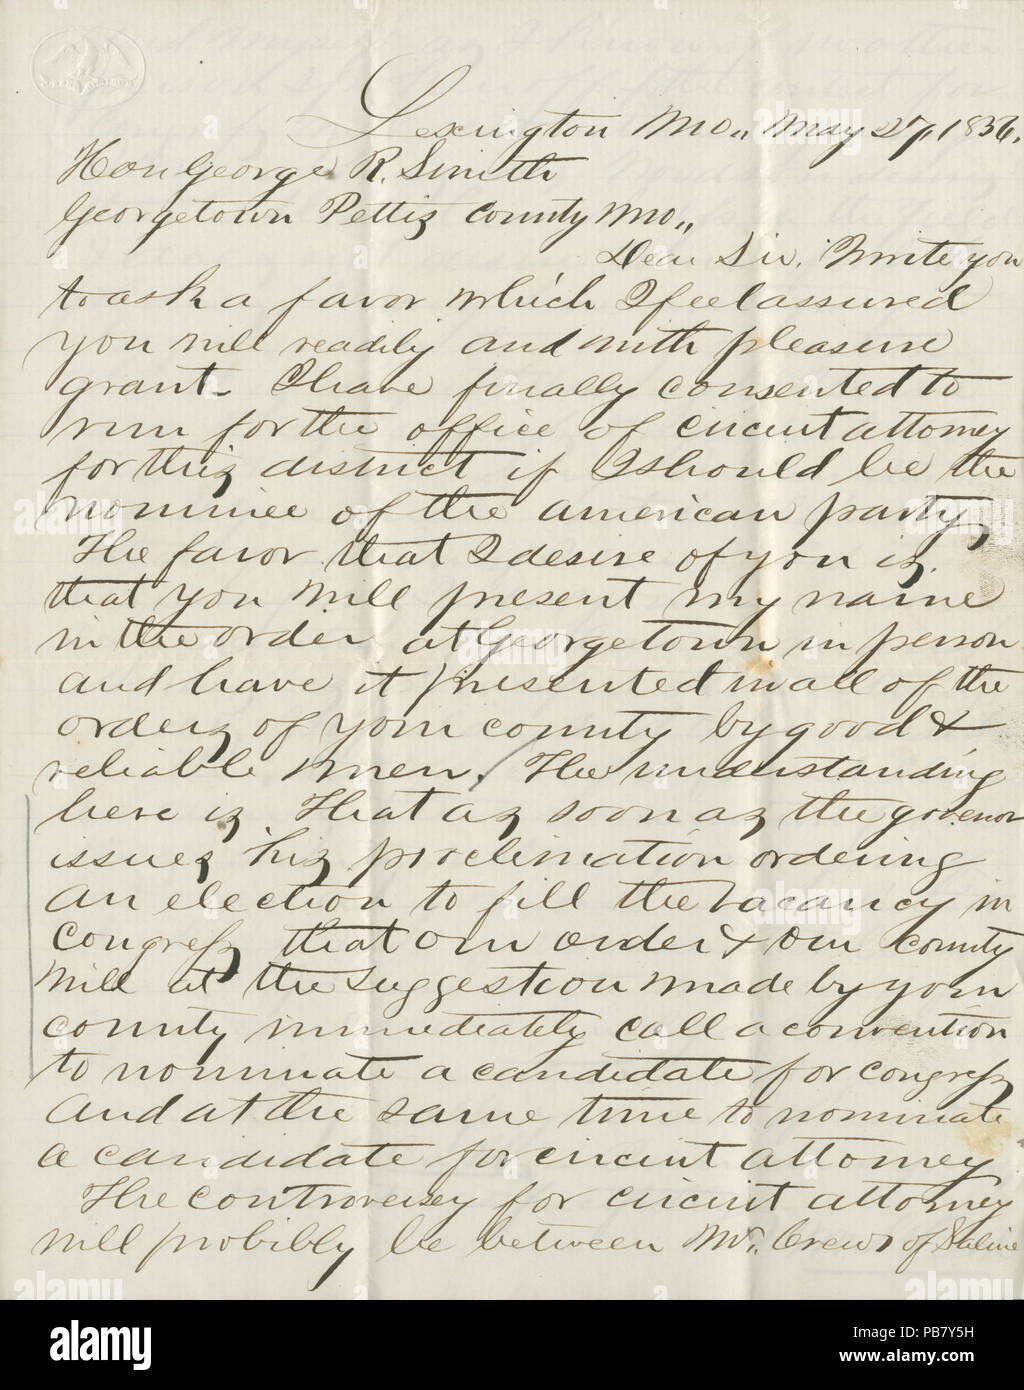 Lexington Mo,, May 27, 1856.
Hon George R. Smith
Georgetown Pettis County Mo,,
Dear Sir. I write you
to ask a favor which I feel assured
you will readily and with pleasure
grant. I have finally consented to
run for the office of circuit attorney
for this district if I should be the
nominee of the american party,
The favor that I desire of you is.
that you will present my name
in the order at Georgetown in person
and have it presented in all of the
orders of your county by good &
reliable men. The understanding
here is That as soon as the governor
issues his proclimation ordering
an election to fill the vacancy in
Congress that our order & our county
will at the suggestion made by your
county immediately call a convention
to nominate a candidate for congress
and at the same time to nominate
a candidate for circuit attorney
The controversy for circuit attorney
will probibly be between Mr,, Crews of Saline
alamy
Image ID: PB7Y5H
www.alamy.com